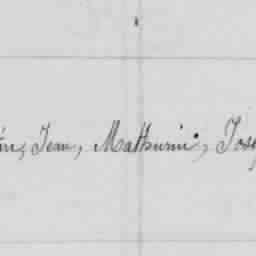 Jean, Mathurin, Jose